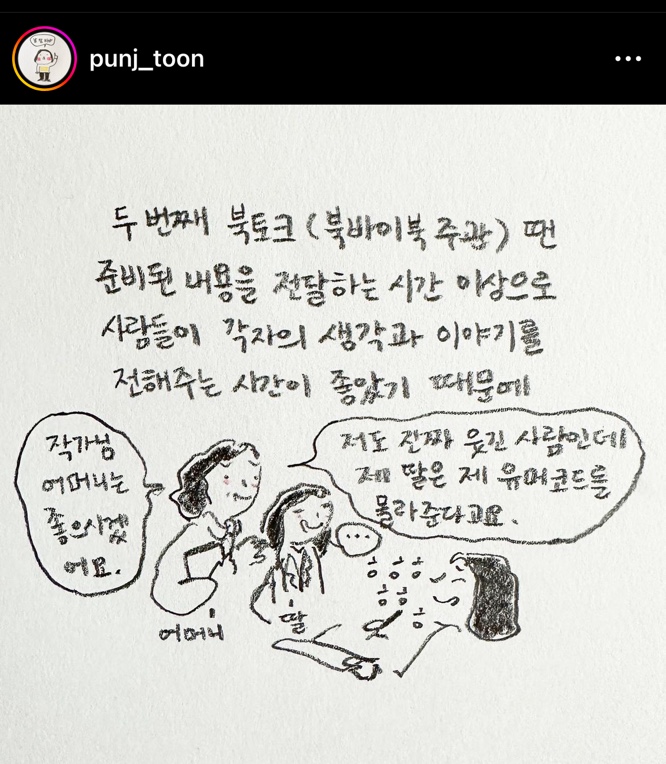 punj_toon
두 번째 북토크 (북바이북 주관) 땐
준비된 내용을 전달하는 시간 이상으로
사람들이 각자의 생각과 이야기를
전해주는 시간이 좋았기 때문에
작가님
어머니는
좋으시겠
어요.
저도 진짜 웃긴 사람인데
제 딸은 제 유머코드를
몰라준다고요.
...
어머니
딸
ㅎㅎㅎ
ㅎㅎ
ㅎ